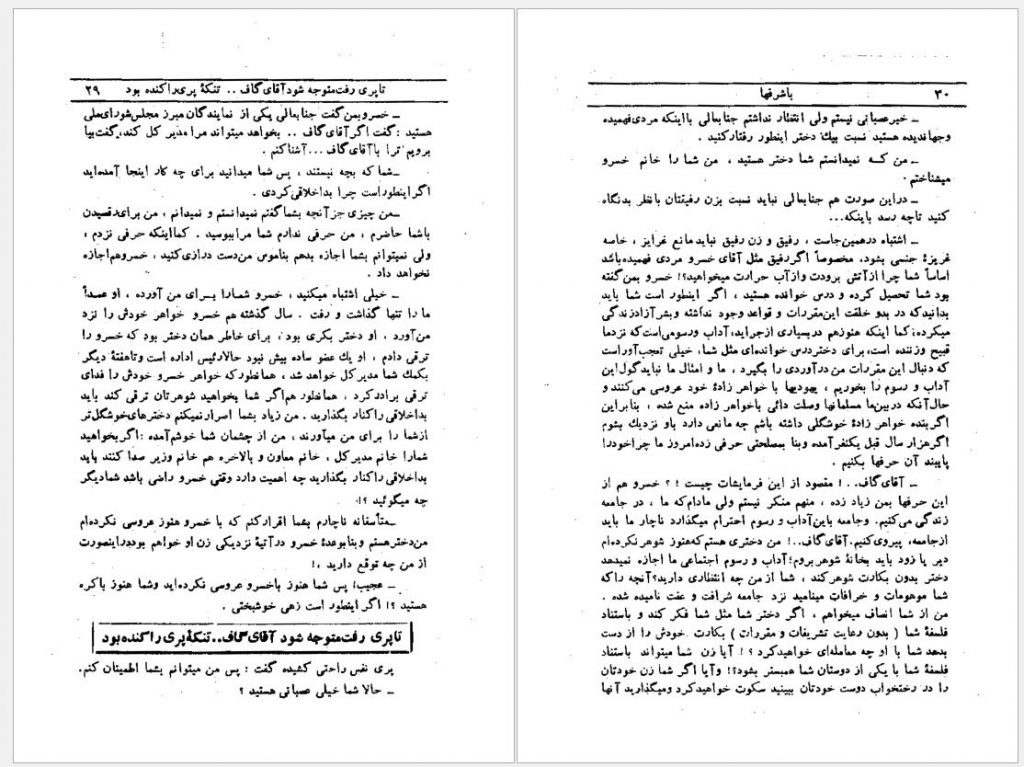 تا پری رفت متوجه شود آقای گاف .. تنکهٔ پری را کنده بود ۲۹
ـ خسرو بمن گفت جنابعالی یکی از نمایندگان مبرز مجلس شورای ملی
هستید ؛ گفت اگر آقای گاف .. بخواهد میتواند مرا مدیر کل کند، گفت بیا
برویم ترا با آقای گاف ... آشنا کنم .
ـ شما که بچه نیستند ، پس شما میدانید برای چه کار اینجا آمده‌اید
اگر اینطور است چرا بداخلاقی کردی .
ـ من چیزی جز آنچه بشما گفتم نمیدانستم و نمیدانم ، من برای رقصیدن
باشما حاضرم ، من حرفی ندارم شما مرا ببوسید . کما اینکه حرفی نزدم ،
ولی نمیتوانم بشما اجازه بدهم بناموس من دست درازی کنید ، خسرو هم اجازه
نخواهد داد .
ـ خیلی اشتباه میکنید ، خسرو شما را بـرای من آورده ، او عمداً
ما را تنها گذاشت و رفت . سال گذشته هم خسرو خواهر خودش را نزد
من آورد . او دختر بکری بود ، برای خاطر همان دختر بود که خسرو را
ترقی دادم ، او یك عضو ساده بیش نبود حالا رئیس اداره است و تا هفتهٔ دیگر
بکمك شما مدیر کل خواهد شد ، همانطور که خواهر خسرو خودش را فدای
ترقی برادر کرد ، همانطور هم اگر شما بخواهید شوهرتان ترقی کند باید
بداخلاقی را کنار بگذارید . من زیاد بشما اسرار نمیکنم دخترهای خوشگل‌تر
از شما را برای من میآورند ، من از چشمان شما خوشم آمده : اگر بخواهید
شما را خانم مدیر کل ، خانم معاون و بالاخره هم خانم وزیر صدا کنند باید
بداخلاقی را کنار بگذارید چه اهمیت دارد وقتی خسرو راضی باشد شما دیگر
چه میگوئید ؟!
ـ متأسفانه ناچارم بشما اقرار کنم که با خسرو هنوز عروسی نکرده‌ام
من دختر هستم و بنا بوعدهٔ خسرو در آتیهٔ نزدیکی زن او خواهم بود در اینصورت
از من چه توقع دارید ،!
ـ عجیب؛ پس شما هنوز باخسرو عروسی نکرده‌اید وشما هنوز باکره
هستید ؟! اگر اینطور است زهی خوشبختی .
تا پری رفت متوجه شود آقای گاف.. تنکهٔ پری را کنده بود
پری نفس راحتی کشیده گفت : پس من میتوانم بشما اطمینان کنم.
ـ حالا شما خیلی عصبانی هستید ؟
۳۰ باشرفها
ـ خیر عصبانی نیستم ولی انتظار نداشتم جنابعالی با اینکه مردی فهمیده
وجهاندیده هستید نسبت بیك دختر اینطور رفتار کنید .
ـ من کـه نمیدانستم شما دختر هستید ، من شما را خانم خسرو
میشناختم .
ـ در این صورت هم جنابعالی نباید نسبت بزن رفیقتان بانظر بد نگاه
کنید تا چه رسد باینکه...
ـ اشتباه در همین جاست ، رفیق و زن رفیق نباید مانع غرایز ، خاصه
غریزهٔ جنسی بشود، مخصوصاً اگر رفیق مثل آقای خسرو مردی فهمیده باشد
اساساً شما چرا از آتش برودت و از آب حرارت میخواهید؟! خسرو بمن گفته
بود شما تحصیل کرده و درس خوانده هستید ، اگر اینطور است شما باید
بدانید که در بدو خلقت این مقررات و قواعد وجود نداشته و بشر آزاد زندگی
میکرده؛ کما اینکه هنوز هم در بسیاری از جراید، آداب و رسومی است که نزد ما
قبیح و زننده است، برای دختر درس خوانده‌ای مثل شما، خیلی تعجب‌آور است
که دنبال این مقررات من درآوردی را بگیرد ، ما و امثال ما نباید گول این
آداب و رسوم را بخوریم ، یهودیها با خواهر زادهٔ خود عروسی می‌کنند و
حال آنکه در بین ما مسلمانها وصلت دائی با خواهر زاده منع شده ، بنابراین
اگر بنده خواهر زادهٔ خوشگلی داشته باشم چه مانعی دارد باو نزدیك بشوم
اگر هزار سال قبل یکنفر آمده و بنا بمصلحتی حرفی زده امروز ما چرا خود را
پایبند آن حرفها بکنیم .
ـ آقای گاف.. ! مقصود از این فرمایشات چیست ! ؟ خسرو هم از
این حرفها بمن زیاد زده ، منهم منکر نیستم ولی مادام که ما ، در جامعه
زندگی می‌کنیم. و جامعه باین آداب و رسوم احترام میگذارد ناچار ما باید
از جامعه، پیروی کنیم. آقای گاف..! من دختری هستم که هنوز شوهر نکرده‌ام
دیر یا زود باید بخانهٔ شوهر بروم؛ آداب و رسوم اجتماعی ما اجازه نمیدهد
دختر بدون بکارت شوهر کند ، شما از من چه انتظاری دارید؟ آنچه را که
شما موهومات و خرافات مینامید نزد جامعه شرافت و عفت نامیده شده .
من از شما انصاف میخواهم ، اگر دختر شما مثل شما فکر کند و باستناد
فلسفهٔ شما ( بدون رعایت تشریفات و مقررات ) بکارت خودش را از دست
بدهد شما با او چه معامله‌ای خواهید کرد ؟ ! آیا زن شما میتواند باستناد
فلسفهٔ شما با یکی از دوستان شما همبستر بشود؟! و آیا اگر شما زن خودتان
را در رختخواب دوست خودتان ببینید سکوت خواهید کرد و میگذارید آنها